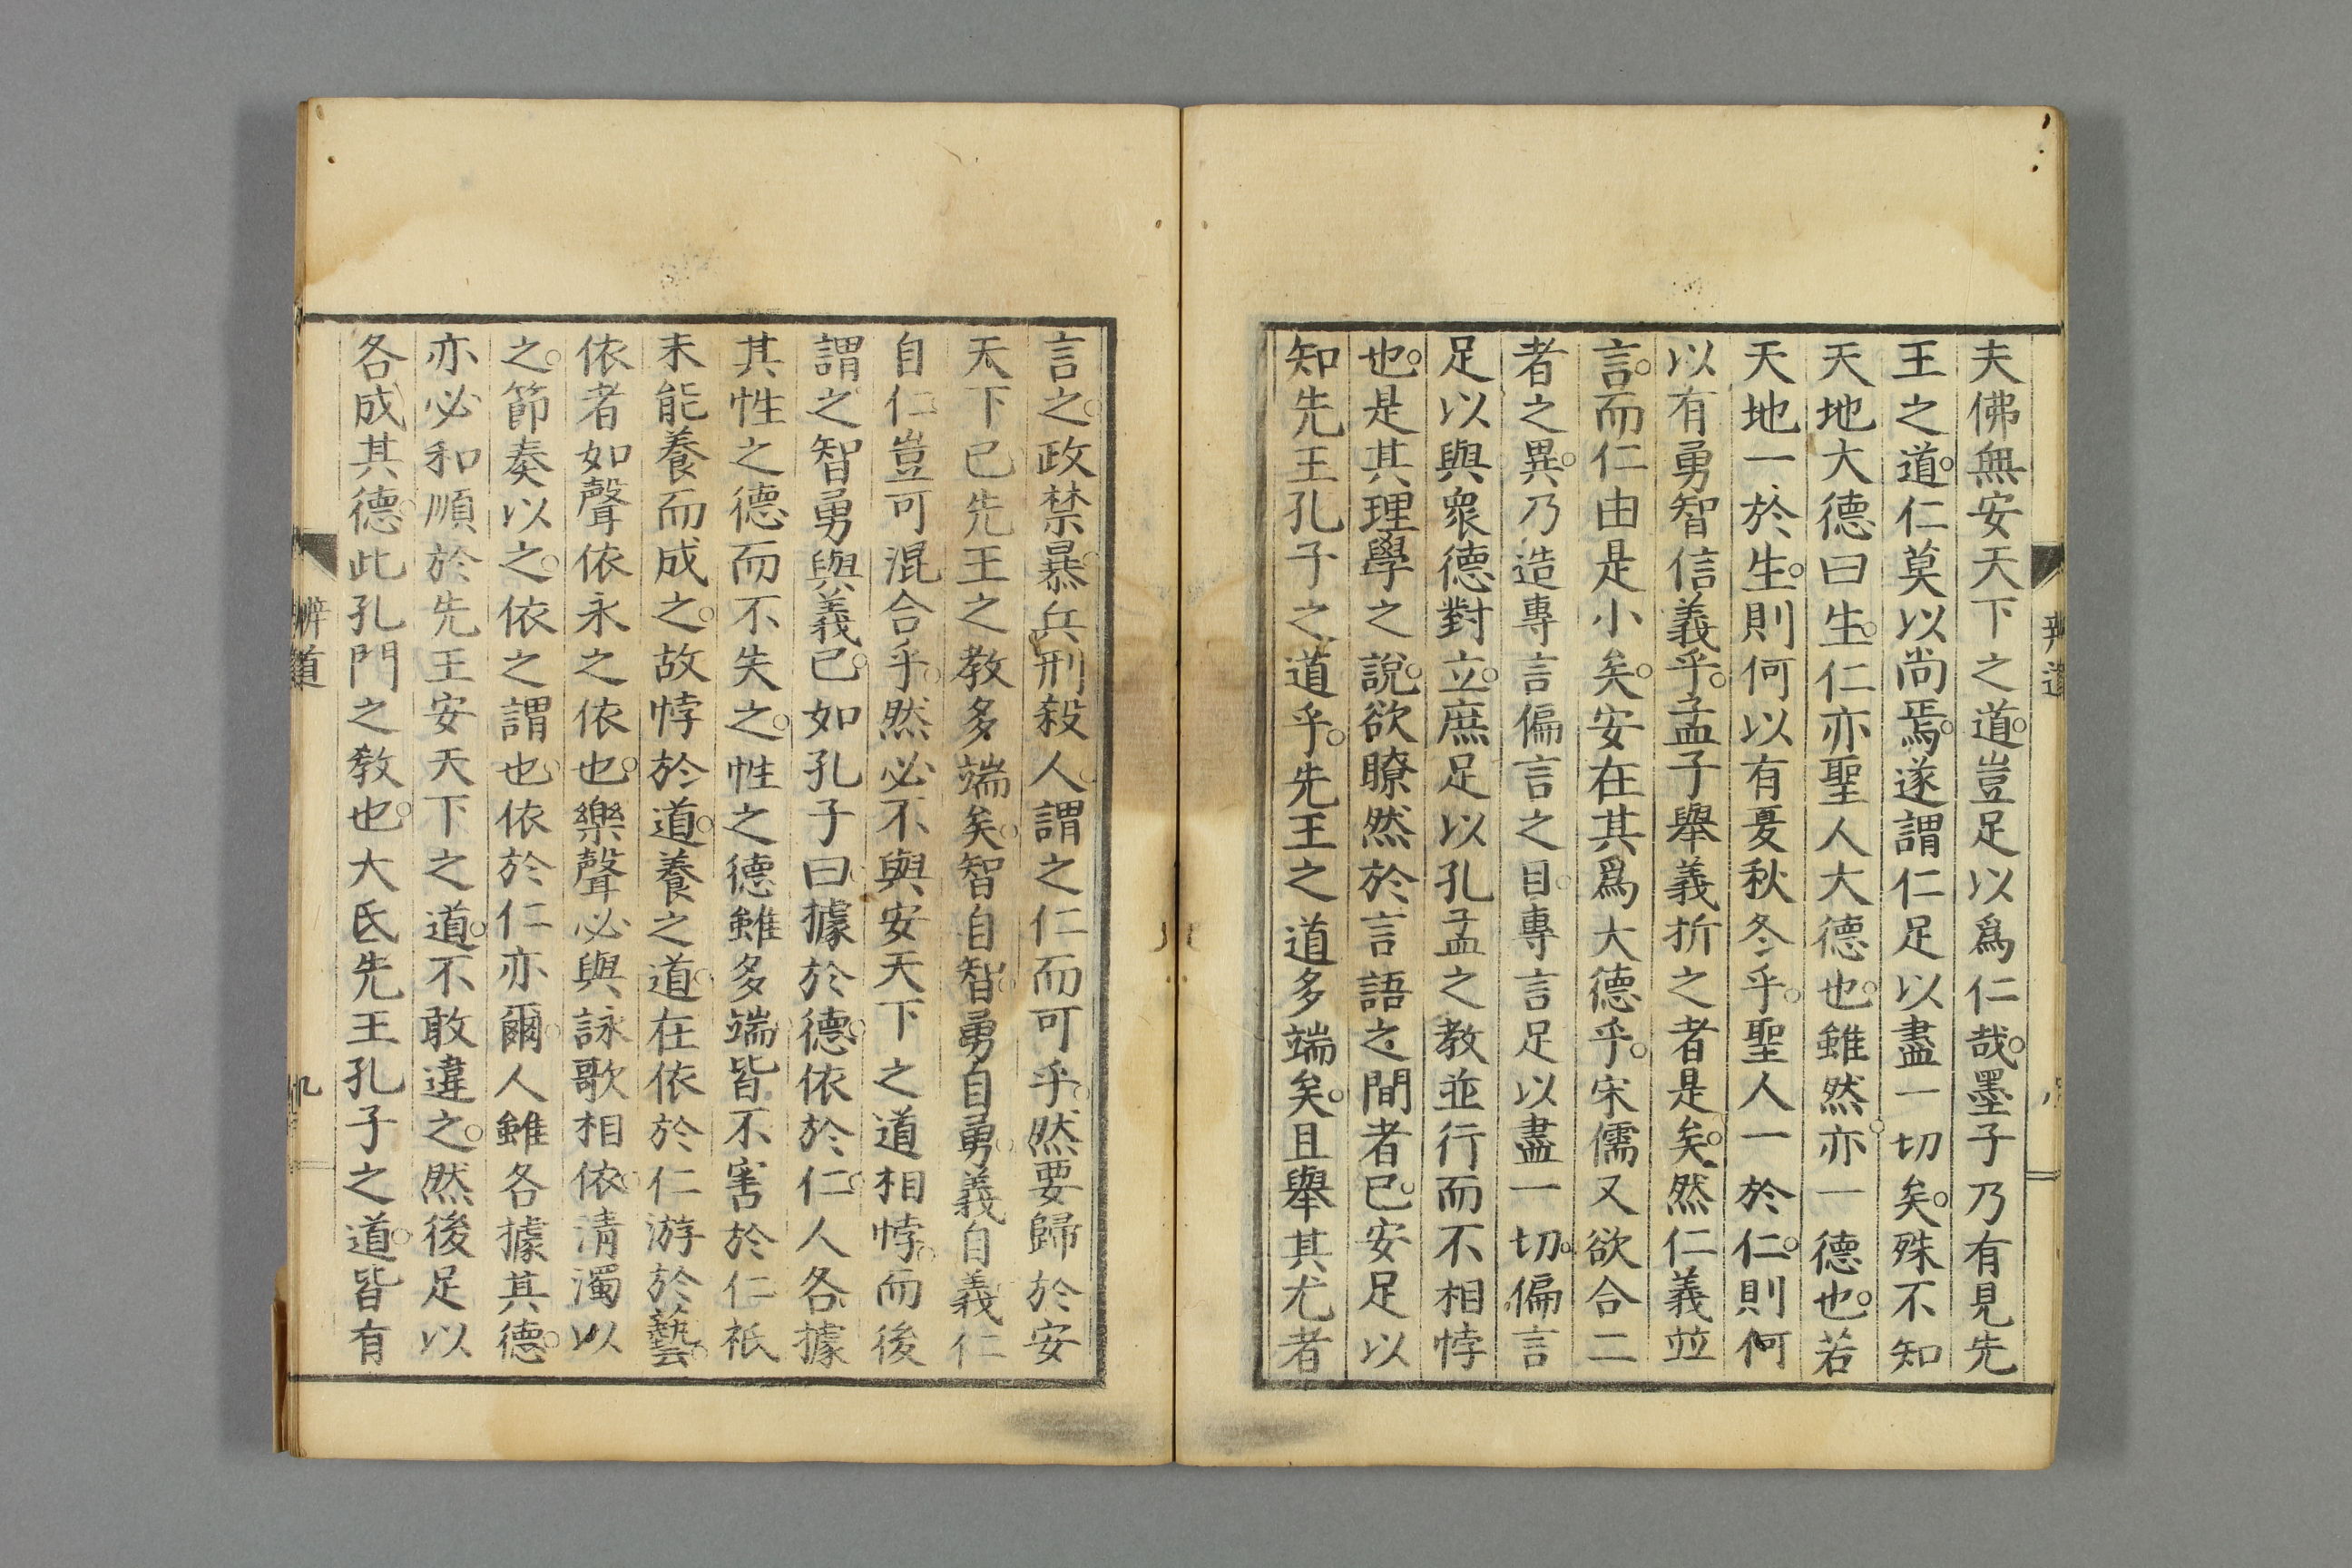 夫佛無安天下之道。豈足以爲仁哉。墨子乃有見先
王之道。仁莫以尚焉。遂謂仁足以盡一切矣。殊不知
天地大德曰生。仁亦聖人大德也。雖然。亦一德也。若
天地一於生。則何以有夏秋冬乎。聖人一於仁。則何
以有勇智信義乎。孟子舉義折之者是矣。然仁義並
言。而仁由是小矣。安在其爲大德乎。宋儒又欲合二
者之異。乃造專言偏言之目。專言足以盡一切。偏言
足以與衆德對立。庶足以孔孟之教並行而不相悖
也。是其理學之說。欲瞭然於言語之間者已。安足以
知先王孔子之道乎。先王之道多端矣。且舉其尤者
言之。政禁暴。兵刑殺人。謂之仁而可乎。然要歸於安
天下已。先王之教多端矣。智自智。勇自勇。義自義。仁
自仁。豈可混合乎。然必不與安天下之道相悖。而後
謂之智勇與義已。如孔子曰。據於德。依於仁。人各據
其性之德而不失之。性之德雖多端。皆不害於仁。祇
未能養而成之。故悖於道。養之道。在依於仁游於藝。
依者如聲依永之依也。樂聲必與詠歌相依。淸濁以
之。節奏以之。依之謂也。依於仁亦爾。人雖各據其德。
亦必和順於先王安天下之道。不敢違之。然後足以
各成其德。此孔門之教也。大氐先王孔子之道。皆有
辨道
九